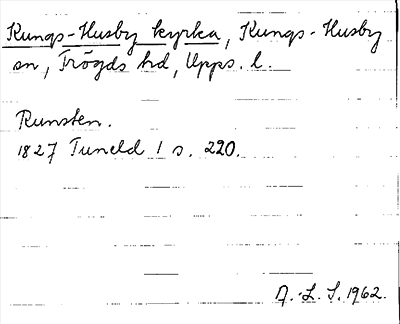 Kungs-Husby kyrka, Kungs-Husby
sn, Trögds hd, Upps. l.
Runsten.
1827 Tuneld 1 s. 220.
A.-L. S. 1962.